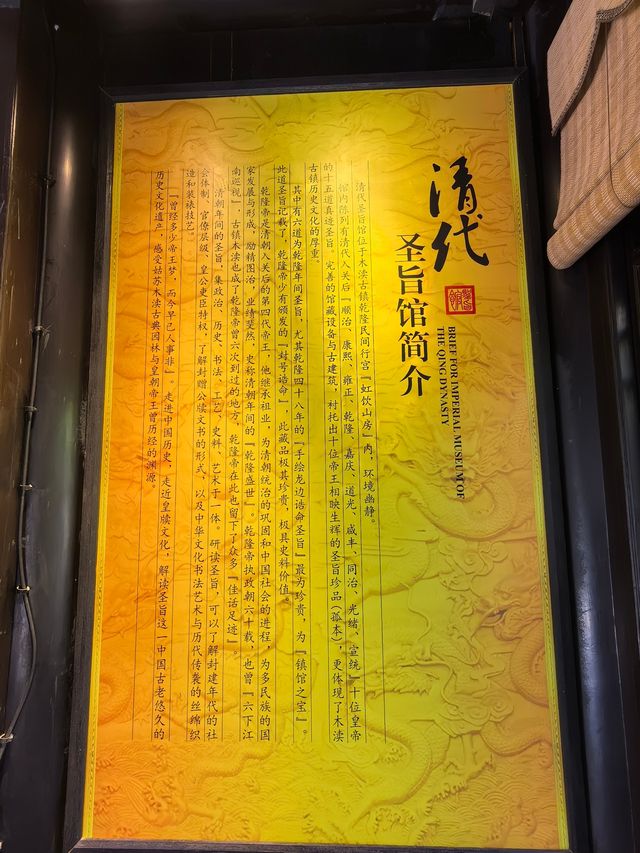 清代
圣旨馆简介
BRIEF FOR IMPERIAL MUSEUM OF
THE QING DYNASTY
清代圣旨馆位于木渎古镇乾隆民间行宫『虹饮山房』内，环境幽静。
馆内陈列有清代入关后『顺治、康熙、雍正、乾隆、嘉庆、道光、咸丰、同治、光绪、宣统』十位皇帝
的十五道真迹圣旨。完善的馆藏设备与古建筑，衬托出十位帝王相映生辉的圣旨珍品（孤本），更体现了木渎
古镇历史文化的厚重。
其中有六道为乾隆年间圣旨，尤其乾隆四十八年的『手绘龙边诰命圣旨』最为珍贵，为『镇馆之宝』。
此道圣旨记载了，乾隆帝少有颁发的『封号诰命』，此藏品极其珍贵，极具史料价值。
乾隆帝是清朝入关后的第四代帝王，他继承祖业，为清朝统治的巩固和中国社会的进程，为多民族的国
家发展与形成，励精图治，业绩斐然，史称清朝年间的『乾隆盛世』。乾隆帝执政朝六十载，也曾『六下江
南巡视』，古镇木渎也成了乾隆帝曾六次到过的地方，乾隆帝在此也留下了众多『佳话足迹』。
清朝年间的圣旨，集政治、历史、书法、工艺、史料、艺术于一体。研读圣旨，可以了解封建年代的社
会体制、官僚层级、皇公吏臣特权，了解封赠公牍文书的形式，以及中华文化书法艺术与历代传袭的丝绵织
造和装裱技艺。
『曾经多少帝王梦，而今早已人事非』。走进中国历史，走近皇牍文化，解读圣旨这一中国古老悠久的
历史文化遗产，感受姑苏木渎古典园林与皇朝帝王曾历经的渊源。